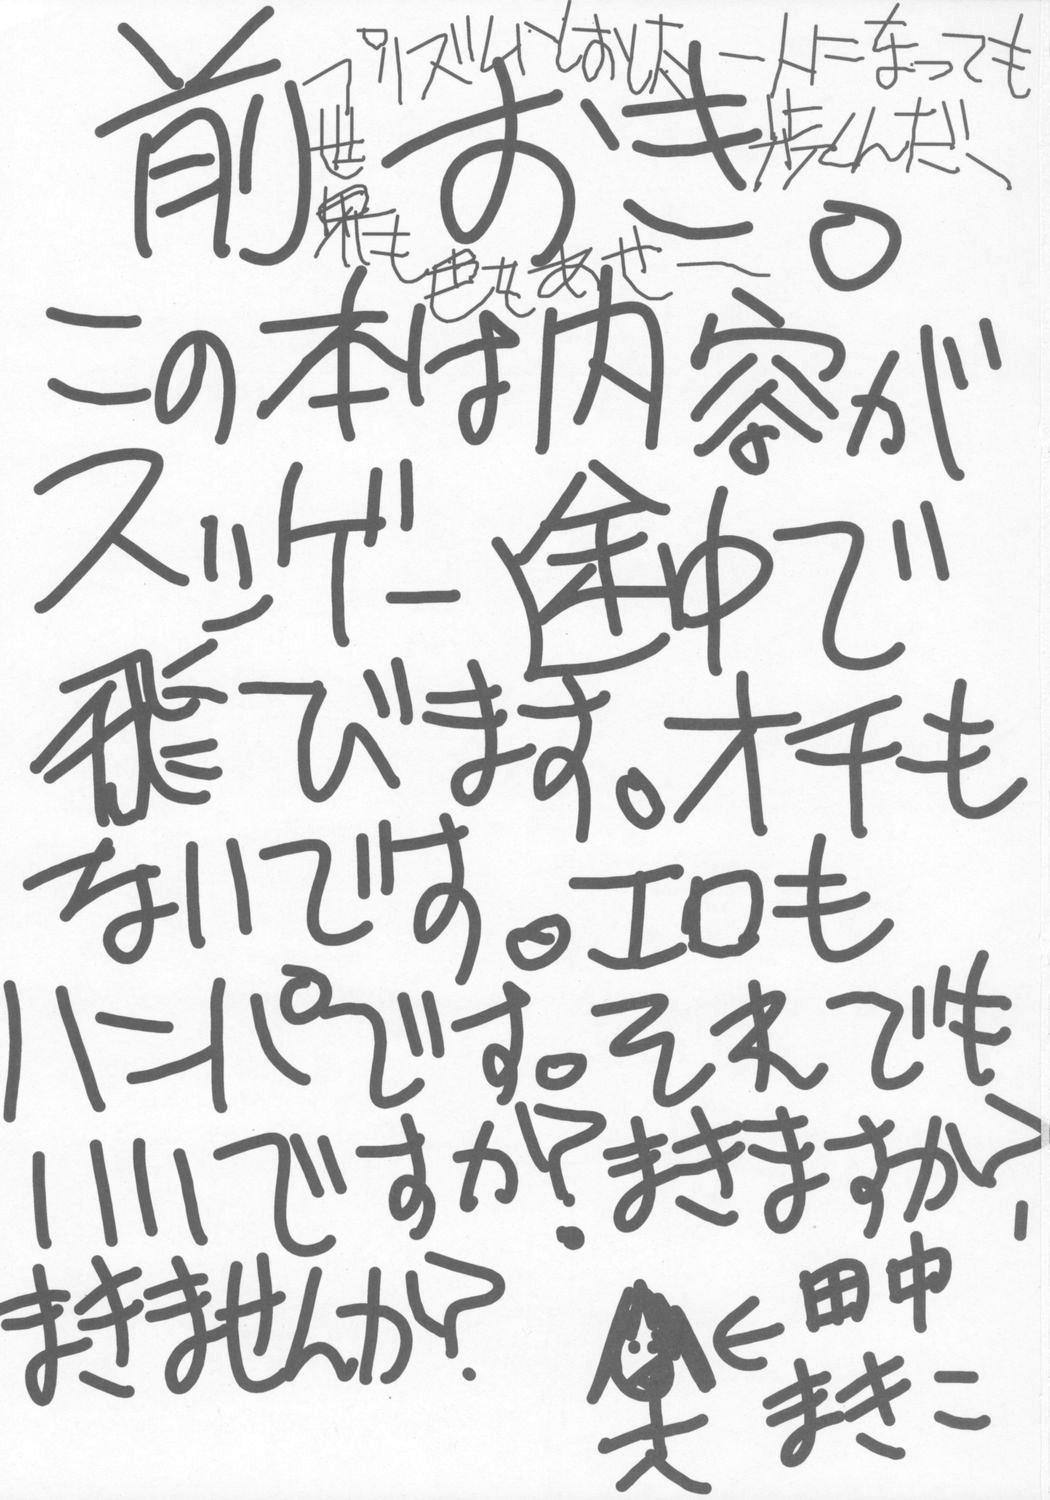 プリズムいとおした 一人になっても
歩くんだ、
世界も
色もあせ
前おき。
この本は内容が
スッゲー途中で
飛びます。オチも
ないです。エロも
ハンパです。それでも
いいですか?まきますか?
まきませんか?
田中
まきこ